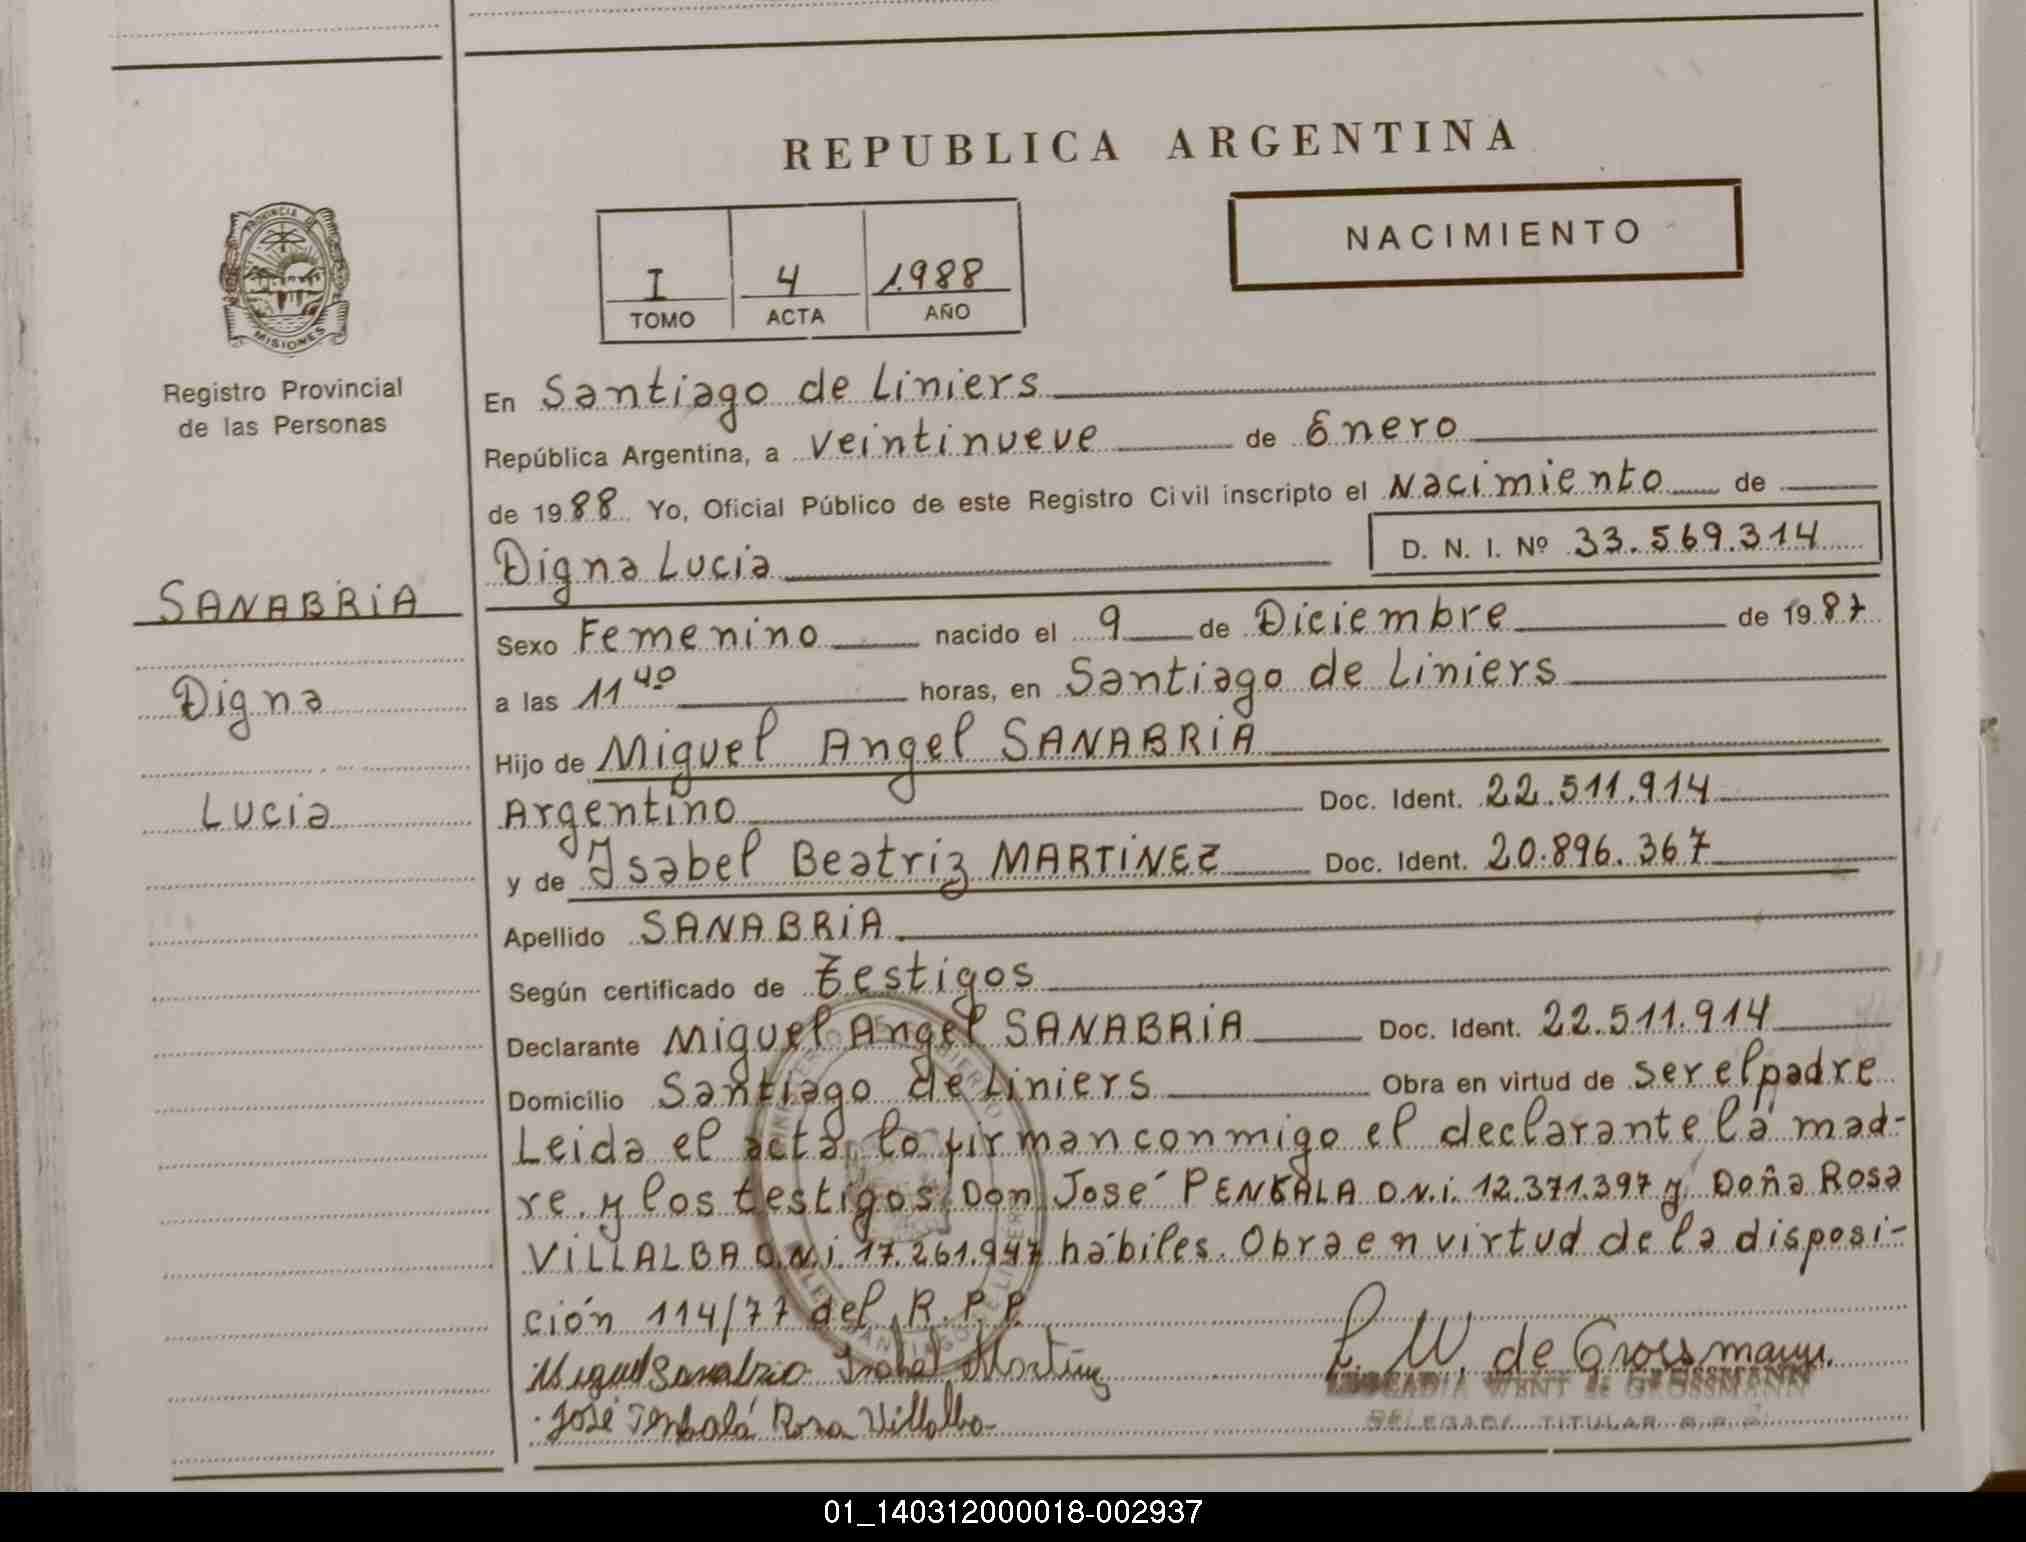 REPUBLICA ARGENTINA
NACIMIENTO
I 4 1.988
TOMO ACTA AÑO
PROVINCIA DE
MISIONES
Registro Provincial
de las Personas
SANABRIA
Digna
Lucia
En Santiago de Liniers
República Argentina, a veintinueve de Enero
de 1988 Yo, Oficial Público de este Registro Civil inscripto el Nacimiento de
Digna Lucia D. N. I. Nº 33.569.314
Sexo Femenino nacido el 9 de Diciembre de 1987
a las 11 40 horas, en Santiago de Liniers
Hijo de Miguel Angel SANABRIA
Argentino Doc. Ident. 22.511.914
y de Isabel Beatriz MARTINEZ Doc. Ident. 20.896.367
Apellido SANABRIA
Según certificado de testigos
Declarante Miguel Angel SANABRIA Doc. Ident. 22.511.914
Domicilio Santiago de Liniers Obra en virtud de ser el padre
Leida el acta, lo firman conmigo el declarante la mad-
re y los testigos Don José PENKALA D.N.i. 12.371.397 y Doña Rosa
VILLALBA D.N.i. 17.261.947 hábiles. Obra en virtud de la disposi-
ción 114/77 del R.P.P.
Miguel Sanabria Isabel Martinez
José Penkalá Rosa Villalba
L. W. de Grossmann.
LEOCADIA WENT de GROSSMANN
DELEGADA TITULAR R.P.P.
01_140312000018-002937